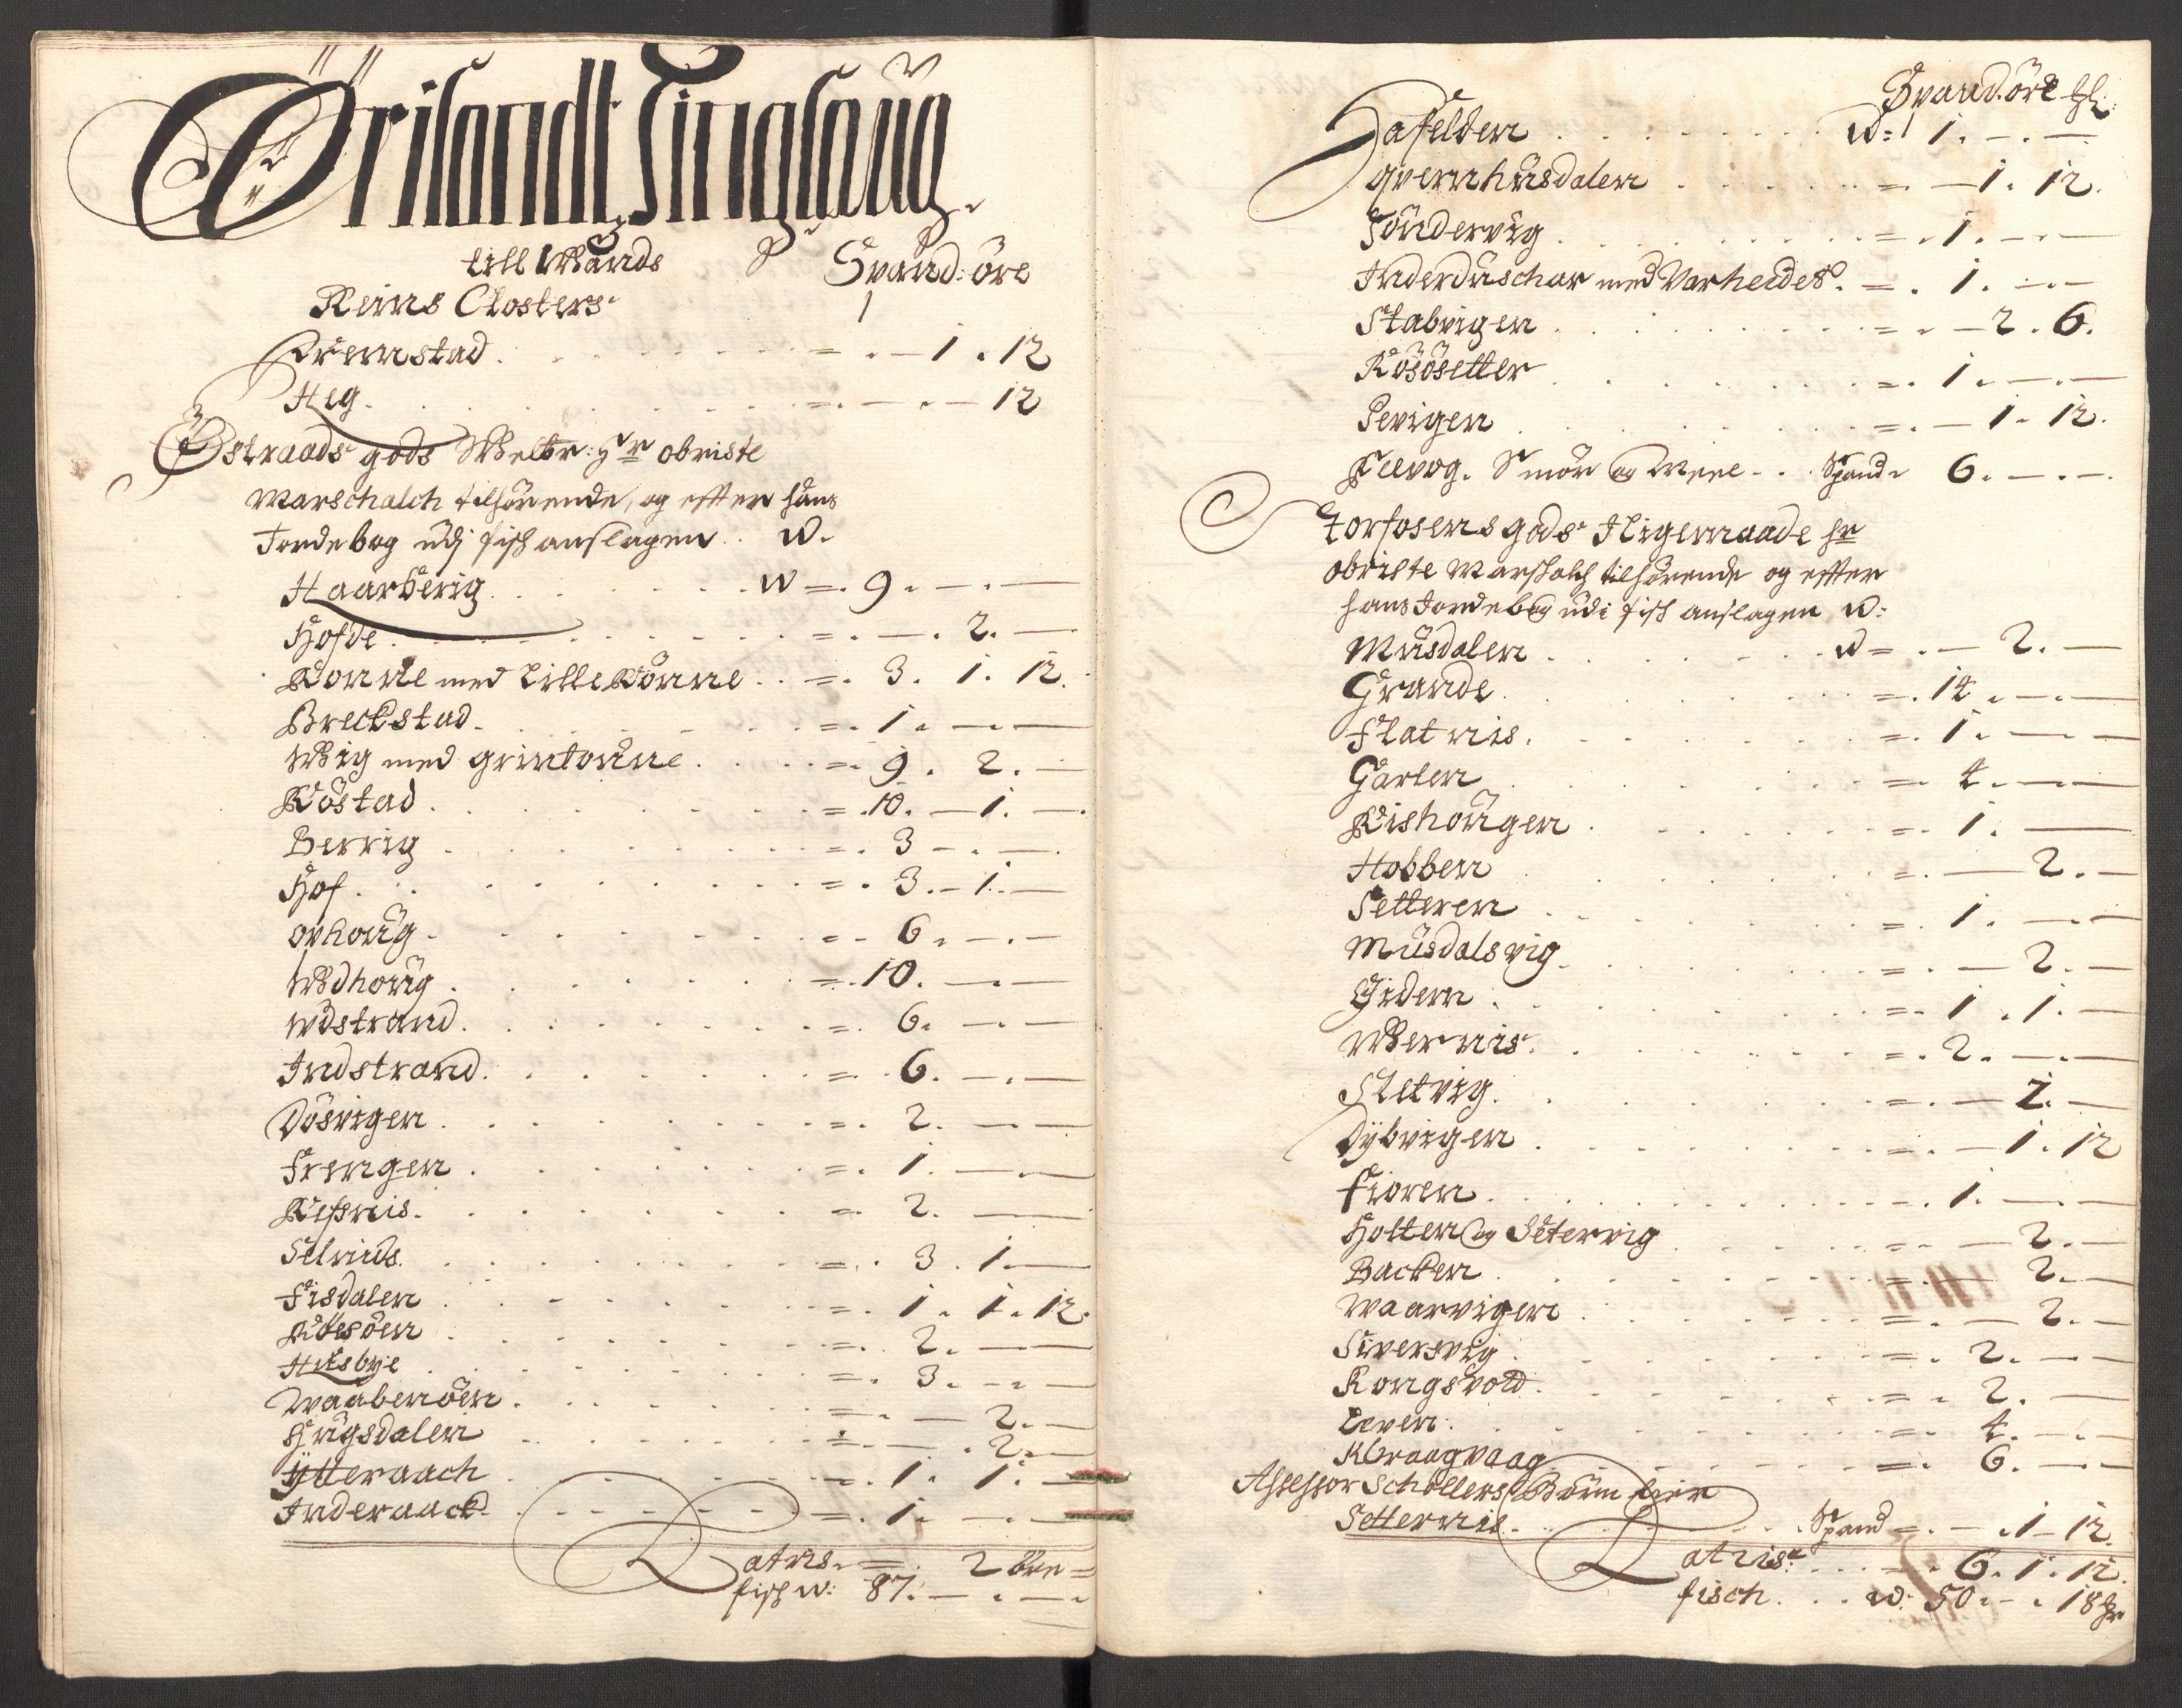 Örlandt Tinglaug
till Waands Spand: öre
Reins Closters
Kremstad . . . = . — 1 . 12
Heg . . . = . — . — 12
Östraads gods Welbr: Hr obriste
Marschalch tilhörende, og efter hans
Jordebog udj fisch anslagen . . W.
Haarberig . . . W = . 9 . — . —
Hofde . . . = . — . 2 . —
Konne med Lille Könne . . = . 3 . 1 . 12
Breckstad . . . = . 1 . — . —
Wiig med grintonne . . . = . 9 . 2 . —
Röstad . . . = . 10 . — 1 . —
Berrig . . . = . 3 — . —
Hof . . . = . 3 . — 1 . —
Ophoug . . . = . 6 . — . —
Wdhoug . . . = . 10 . — . —
Wdstrand . . . = . 6 . — . —
Indstrand . . . = . 6 . — . —
Dösvigen . . . = . 2 . — . —
Frengen . . . = . 1 . — . —
Ressnis . . . = . 2 . — . —
Selnies . . . = . 3 . 1 . —
Fisdalen . . . = . 1 . 1 . 12
= . 2 . — . —
Husbye . . . = . 3 . — . —
Waabenöen . . . = . — 2 . —
Hugsdalen . . . = . — . 2 . —
Ytteraach . . . = . 1 . 1 . —
Inderaack . . . = . 1 . — . —
Latris . = . 2 öre =
fisch W: 87 . — . — .
Spand. öre
Hasselden . . . W: 1 . — . —
Qvernhusdalen . . . = . — 1 . 12
Söndervig . . . = . 1 . — . —
Inderduschar med Varheides . = . 1 . — . —
Stabvigen . . . = . — 2 . 6 .
Rösösetter . . . = . 1 . — . —
Sevigen . . . = . — 1 . 12 .
Smör og Meel . . Spand . 6 . — . —
Storfosens gods I ligemaade Hr
obriste Marschalch tilhörende og efter
hans Jordebog udi fisch anslagen W:
Musdalen . . . W = . — 2 . —
Grande . . . = . 14 . — . —
Flatnis . . . = . 1 . — . —
Garten . . . = . 4 . — . —
Kishougen . . . = . 1 . —
Hobben . . . = . — 2 . —
Setteren . . . = . 1 . — . —
Musdalsvig . . . = . — 2 . —
Gieden . . . = . 1 . 1 . —
Wernis . . . = . 2 . — . —
Sletvig . . . = . — 2 . —
Dybvigen . . . = . — 1 . 12
Fioren . . . = . 1 . — . —
Holten og Setervig . . . = . — 2 . —
Backen . . . = . — 2 . —
Waarvigen . . . = . — 2 . —
Siversvig . . . = . 2 . — . —
Kongsvold . . . = . 2 . —
Leven . . . = . 4 . — . —
Kraagvaag . . . = . 6 . — . —
Assessor Schöllers Börn
Setternis . . . Spand = . — . 1 — 12 .
Latris . . . = . 6 . 1 . 12 .
fisch . . . W: 50 . — . 18